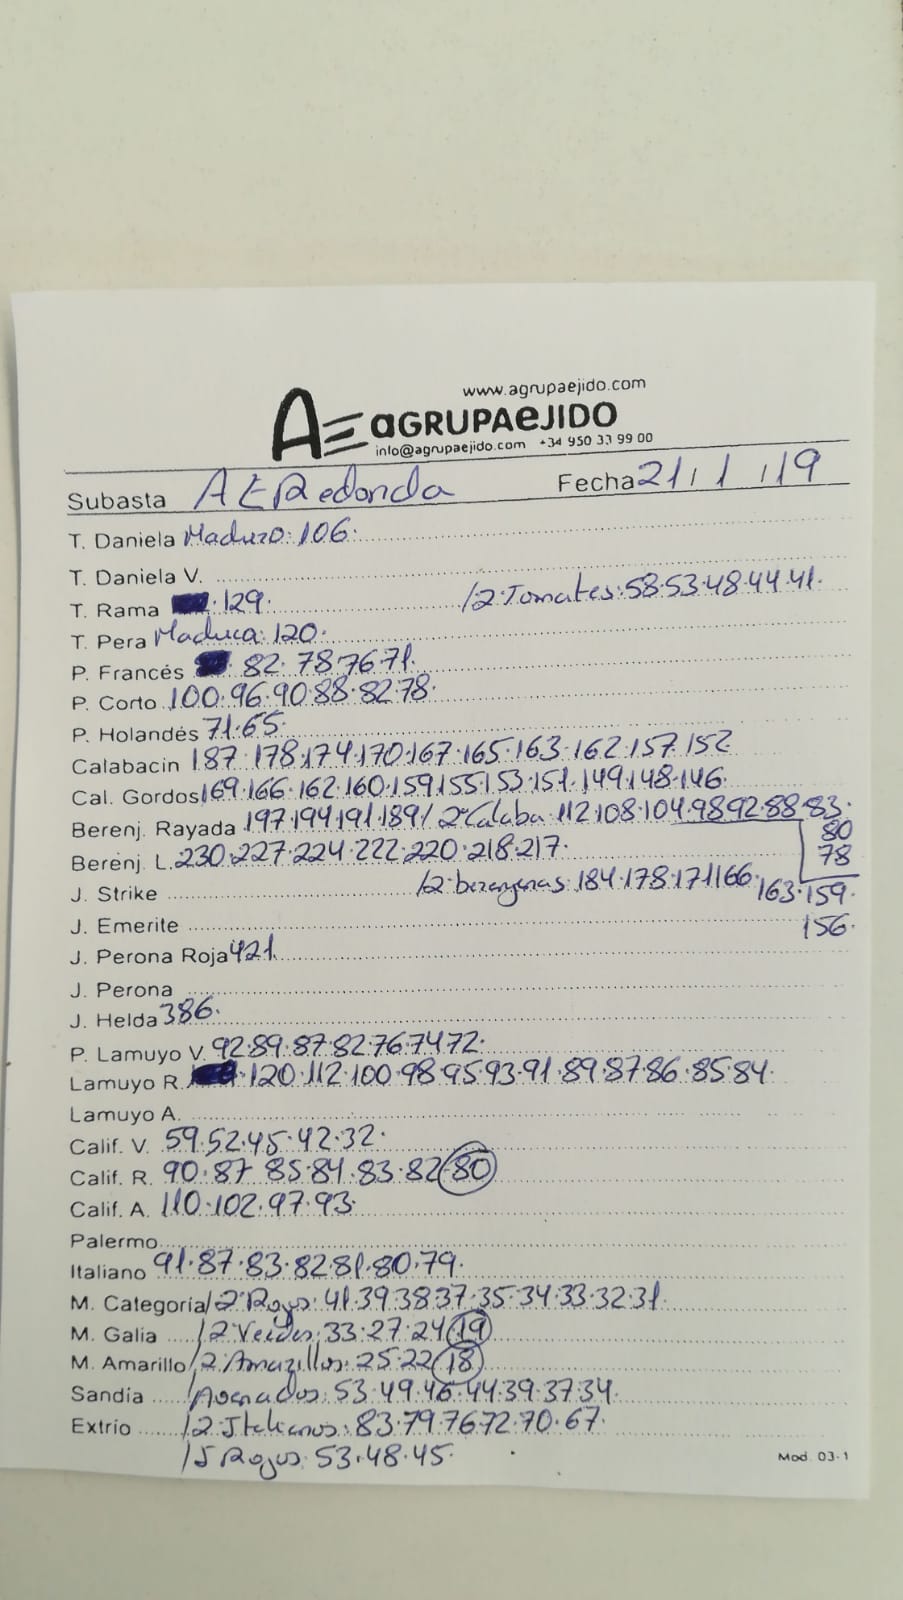 www.agrupaejido.com
AE aGRUPAeJIDO
info@agrupaejido.com +34 950 33 99 00
Subasta AERedonda Fecha 21/1/19
T. Daniela Maduro: 106.
T. Daniela V.
T. Rama 129. /2ªTomates: 58.53.48.44.41.
T. Pera Madura: 120.
P. Francés 82. 78.76.71.
P. Corto 100.96.90.88.82.78.
P. Holandés 71.65.
Calabacin 187.178.174.170.167.165.163.162.157.152
Cal. Gordos 169.166.162.160.159.155.153.151.149.148.146.
Berenj. Rayada 197.194.191.189/2ªCalaba: 112.108.104.98.92.88.83.
80
Berenj. L. 230.227.224.222.220.218.217. 78
J. Strike /2ªberengenas: 184.178.171.166. 163.159.
J. Emerite 156.
J. Perona Roja 421.
J. Perona
J. Helda 386.
P. Lamuyo V. 92.89.87.82.76.74.72.
Lamuyo R. 120.112.100.98.95.93.91.89.87.86.85.84.
Lamuyo A.
Calif. V. 59.52.45.42.32.
Calif. R. 90.87.85.84.83.82.80
Calif. A. 110.102.97.93.
Palermo
Italiano 91.87.83.82.81.80.79.
M. Categoría /2ªRojos: 41.39.38.37.35.34.33.32.31.
M. Galia /2ªVerdes: 33.27.24.19
M. Amarillo /2ªAmarillos: 25.22.18.
Sandía /Asurados: 53.49.46.44.39.37.34.
Extrio /2ªItalianos: 83.79.76.72.70.67.
/S Rojos: 53.48.45.
Mod. 03-1